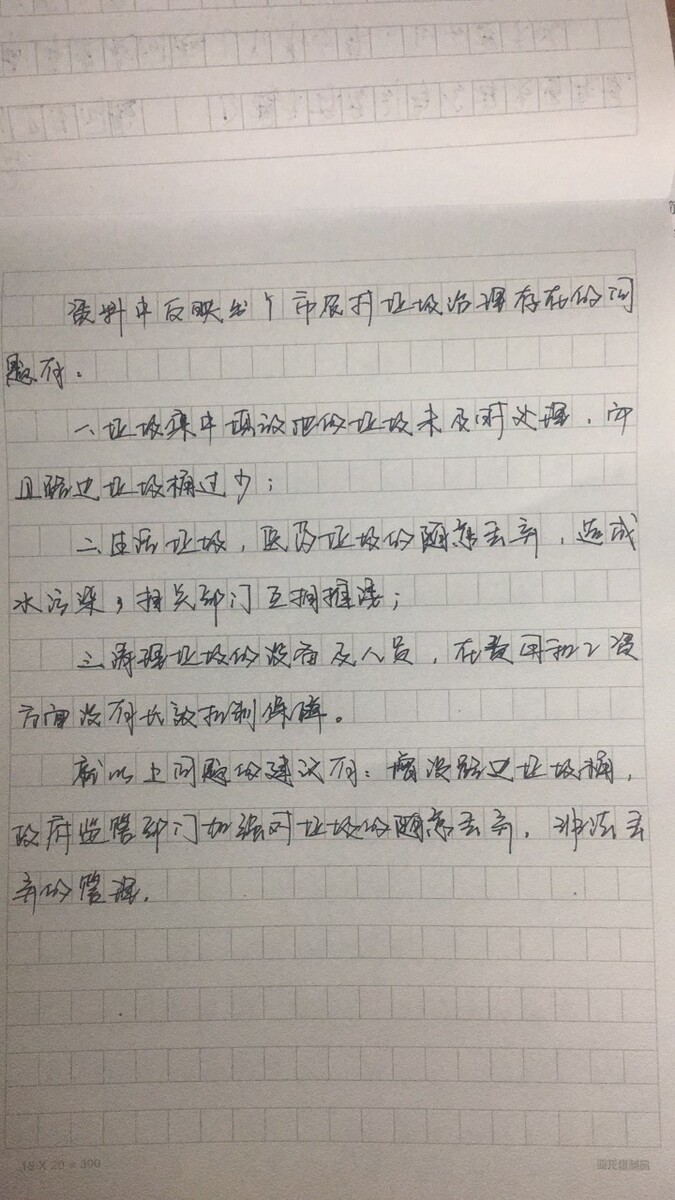 资料中反映出个市农村垃圾治理存在的问
题有：
一、垃圾集中填设池的垃圾未及时处理，而
且路边垃圾桶过少；
二、生活垃圾，医药垃圾的随意丢弃，造成
水污染，相关部门互相推诿；
三、清理垃圾的设备及人员，在费用和工资
方面没有长效机制保障。
就以上问题的建议有：增设路边垃圾桶，
政府监管部门加强对垃圾的随意丢弃，非法丢
弃的管理。
18 X 20 = 300